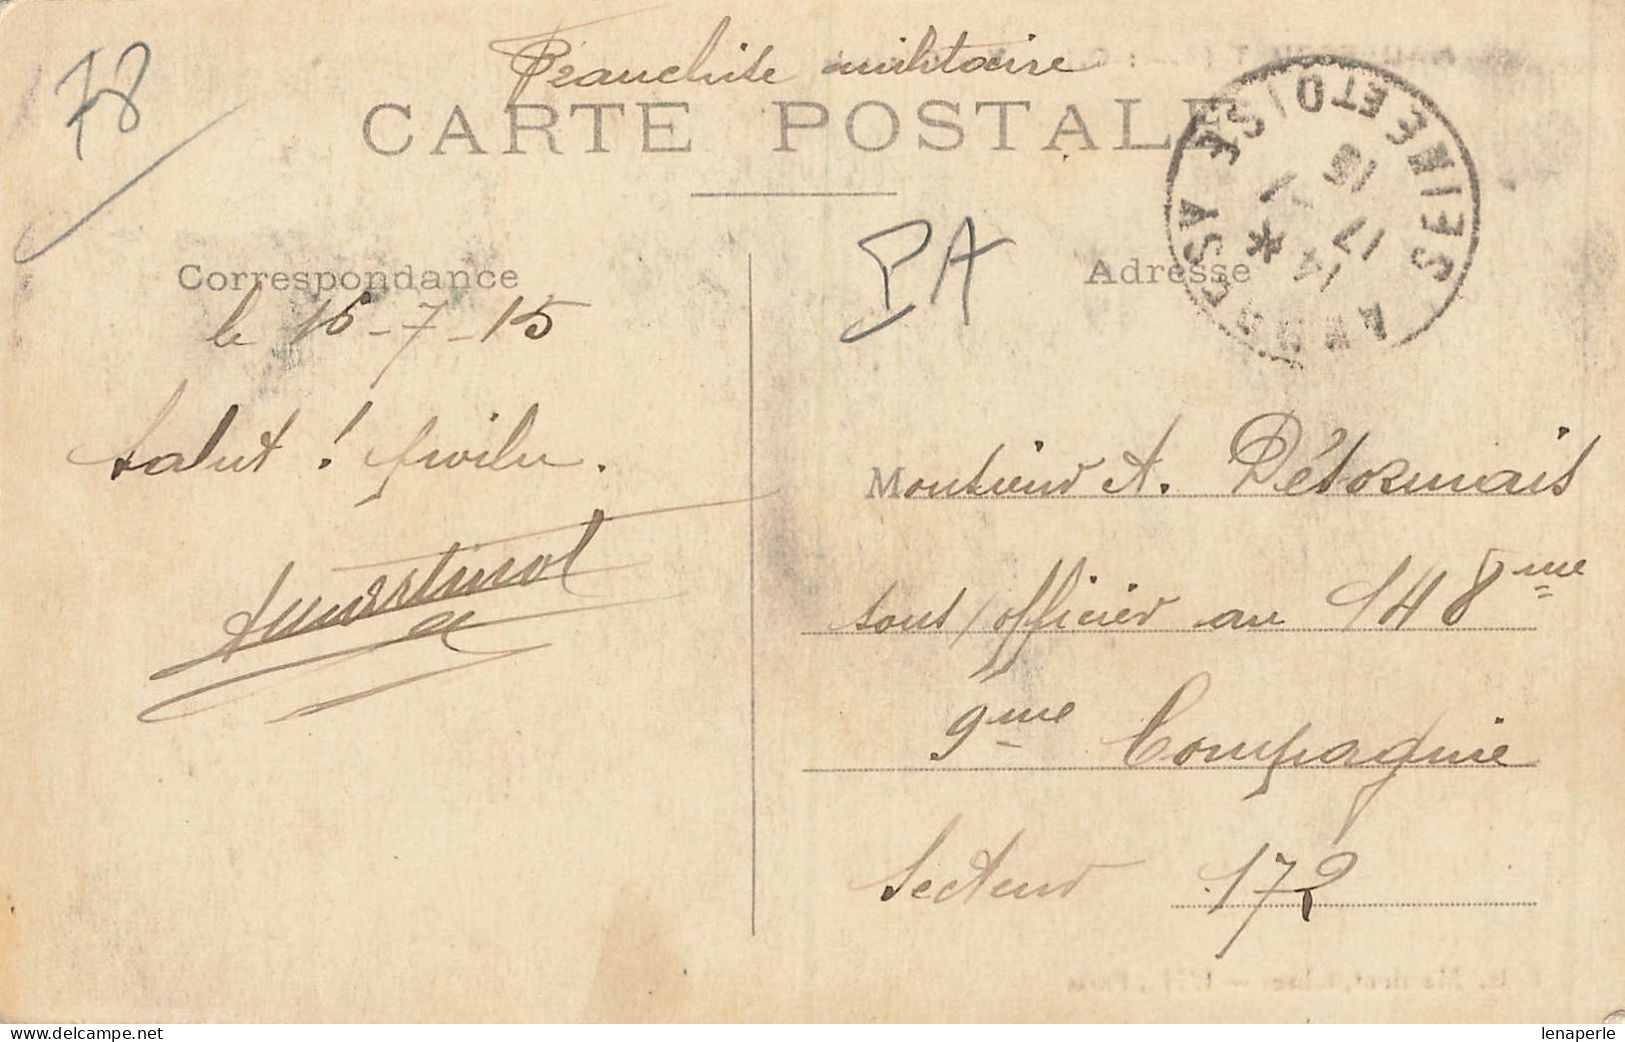 78
Franchise militaire
CARTE POSTALE
ANDRESY
SEINE ET OISE
14
17 7
15
PA
Correspondance
Adresse
le 16-7-15
Salut !
Monsieur A. Désormais
sous/officier au 148ème
9ème Compagnie
Secteur 172
delcampe.net
lenaperle